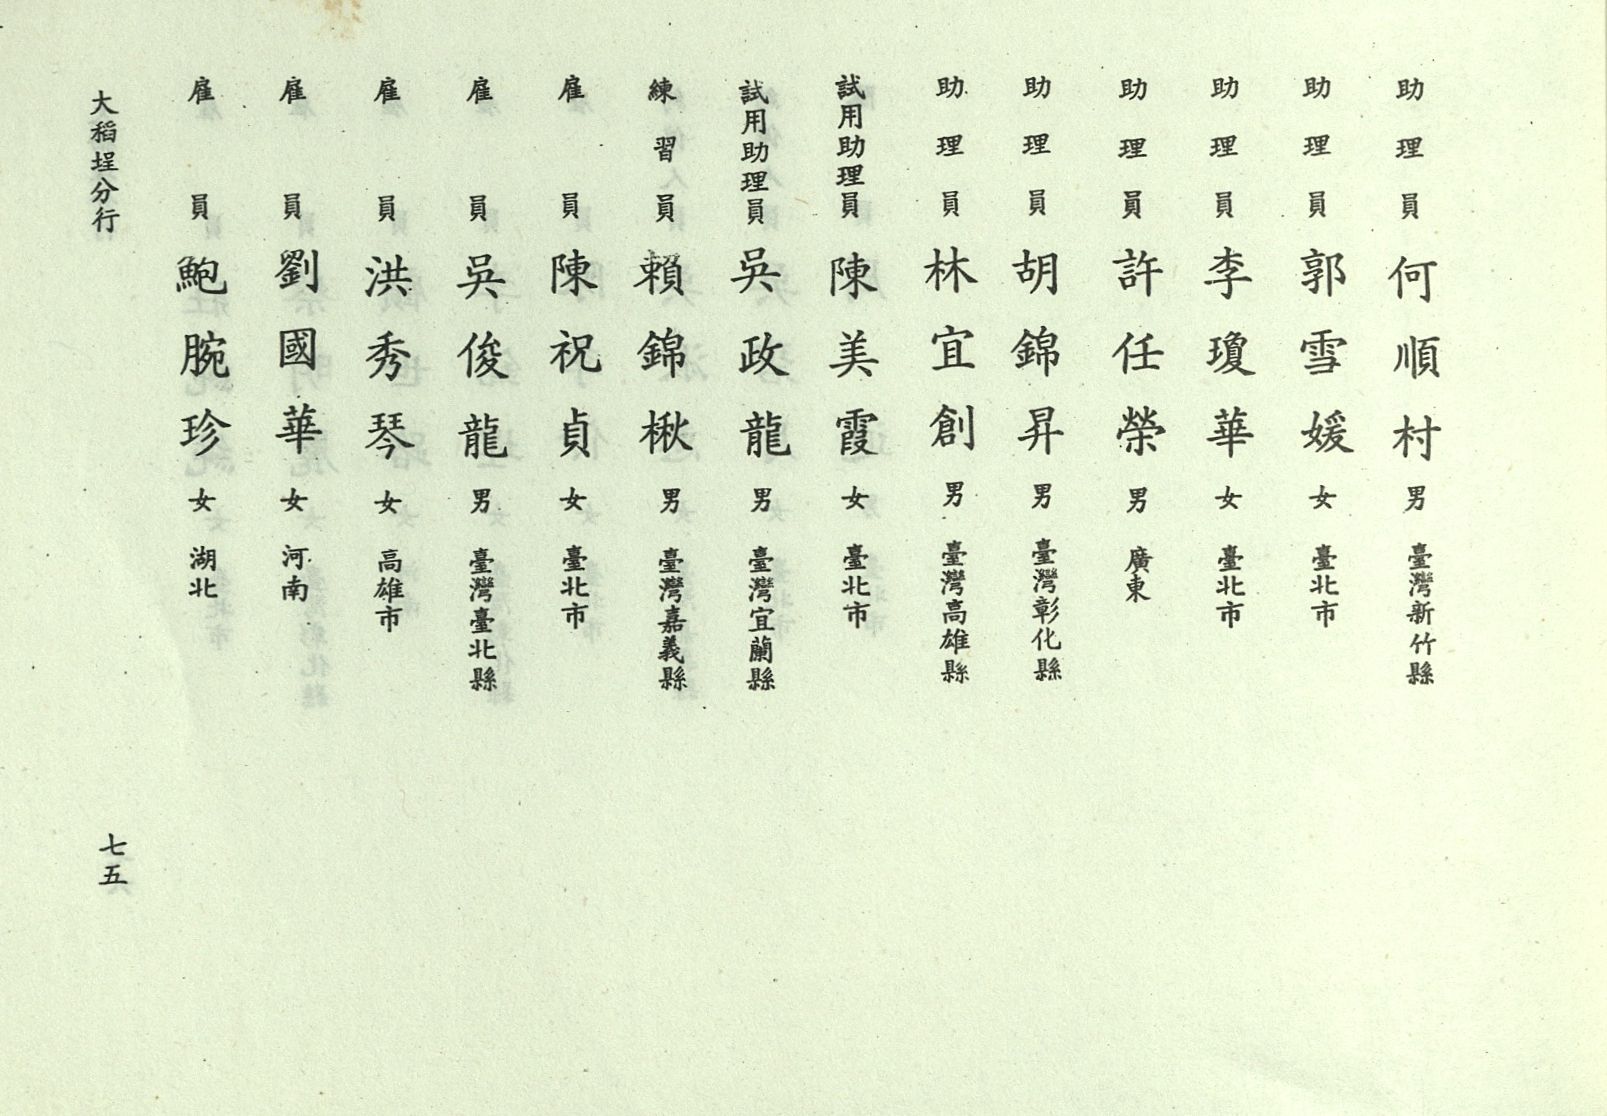 助理員 何順村 男 臺灣新竹縣
助理員 郭雪媛 女 臺北市
助理員 李瓊華 女 臺北市
助理員 許任榮 男 廣東
助理員 胡錦昇 男 臺灣彰化縣
助理員 林宜創 男 臺灣高雄縣
試用助理員 陳美霞 女 臺北市
試用助理員 吳政龍 男 臺灣宜蘭縣
練習員 賴錦楸 男 臺灣嘉義縣
雇員 陳祝貞 女 臺北市
雇員 吳俊龍 男 臺灣臺北縣
雇員 洪秀琴 女 高雄市
雇員 劉國華 女 河南
雇員 鮑腕珍 女 湖北
大稻埕分行 七五